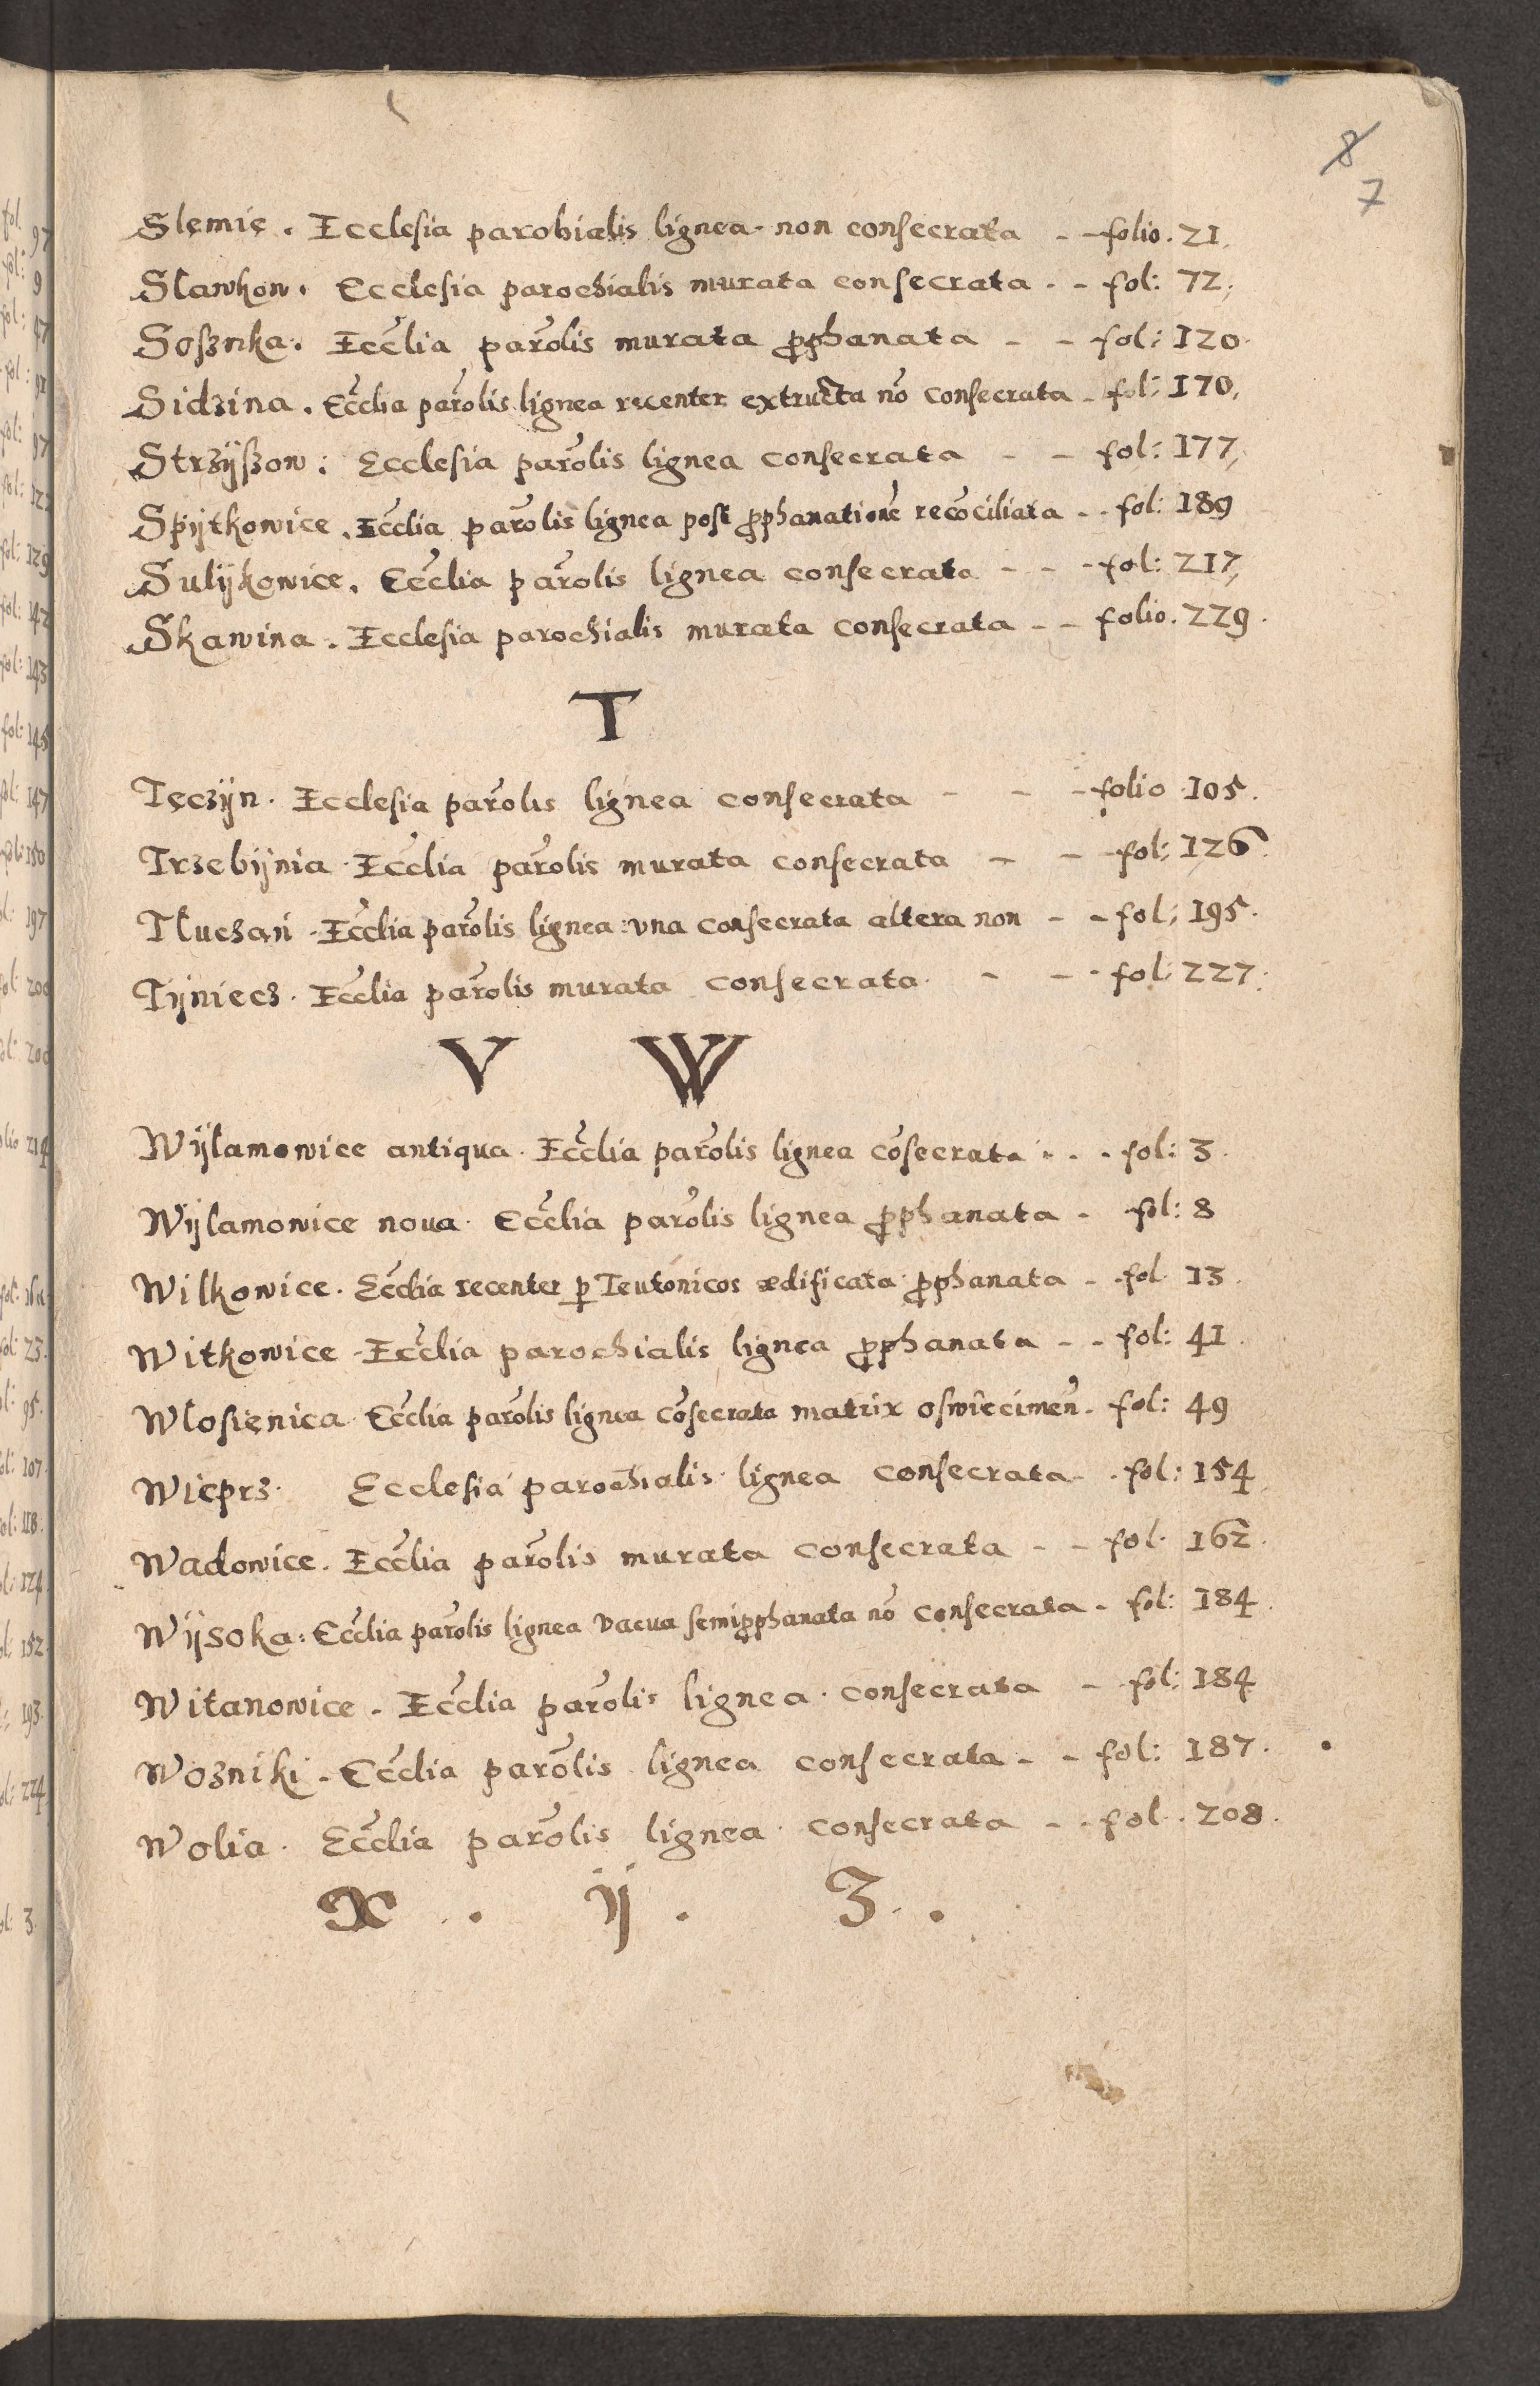 8
7
Slemię. Ecclesia parohialis lignea non consecrata - - folio. 21.
Slawkow. Ecclesia parochialis murata consecrata - - fol: 72.
Soſznka. Eccl̃ia parõlis murata ꝓphanata - - fol: 120.
Sidzina. Eccl̃ia parõlis lignea recenter extructa nõ consecrata - fol: 170.
Strzÿſzow: Ecclesia parõlis lignea consecrata - - fol: 177.
Spÿtkowice. Eccl̃ia parõlis lignea post ꝓphanationẽ recõciliata - - fol: 189
Sulÿkowice. Eccl̃ia parõlis lignea consecrata - - - fol: 217.
Skawina. Ecclesia parochialis murata consecrata - - folio. 229.
T
Tęczÿn. Ecclesia parõlis lignea consecrata - - - folio 105.
Trzebÿnia. Eccl̃ia parõlis murata consecrata - - - fol: 126.
Tluczan. Eccl̃ia parõlis lignea: vna consecrata altera non - - fol: 195.
Tÿniecz. Eccl̃ia parõlis murata consecrata. - - - fol: 227.
V W
Wÿlamowice antiqua. Eccl̃ia parõlis lignea cõsecrata - - - fol: 3.
Wÿlamowice noua. Eccl̃ia parõlis lignea ꝓphanata - fol: 8
Wilkowice. Eccl̃ia recenter ꝑ Teutonicos ædificata ꝓphanata - - fol. 13.
Witkowice - Eccl̃ia parochialis lignea ꝓphanata - - fol: 41.
Wlosięnica Eccl̃ia parõlis lignea cõsecrata matrix oswîecimeñ. fol: 49
Wieprz. Ecclesia parochialis lignea consecrata - - fol: 154.
Wadowice. Eccl̃ia parõlis murata consecrata - - fol. 162.
Wÿsoka: Eccl̃ia parõlis lignea vacua semiꝓphanata nõ consecrata - fol: 184.
Witanowice - Eccl̃ia parõlis lignea consecrata - fol: 184
Wozniki - Eccl̃ia parõlis lignea consecrata - - fol: 187.
Wolia. Eccl̃ia parõlis lignea consecrata - - fol. 208.
X . ÿ . Z .